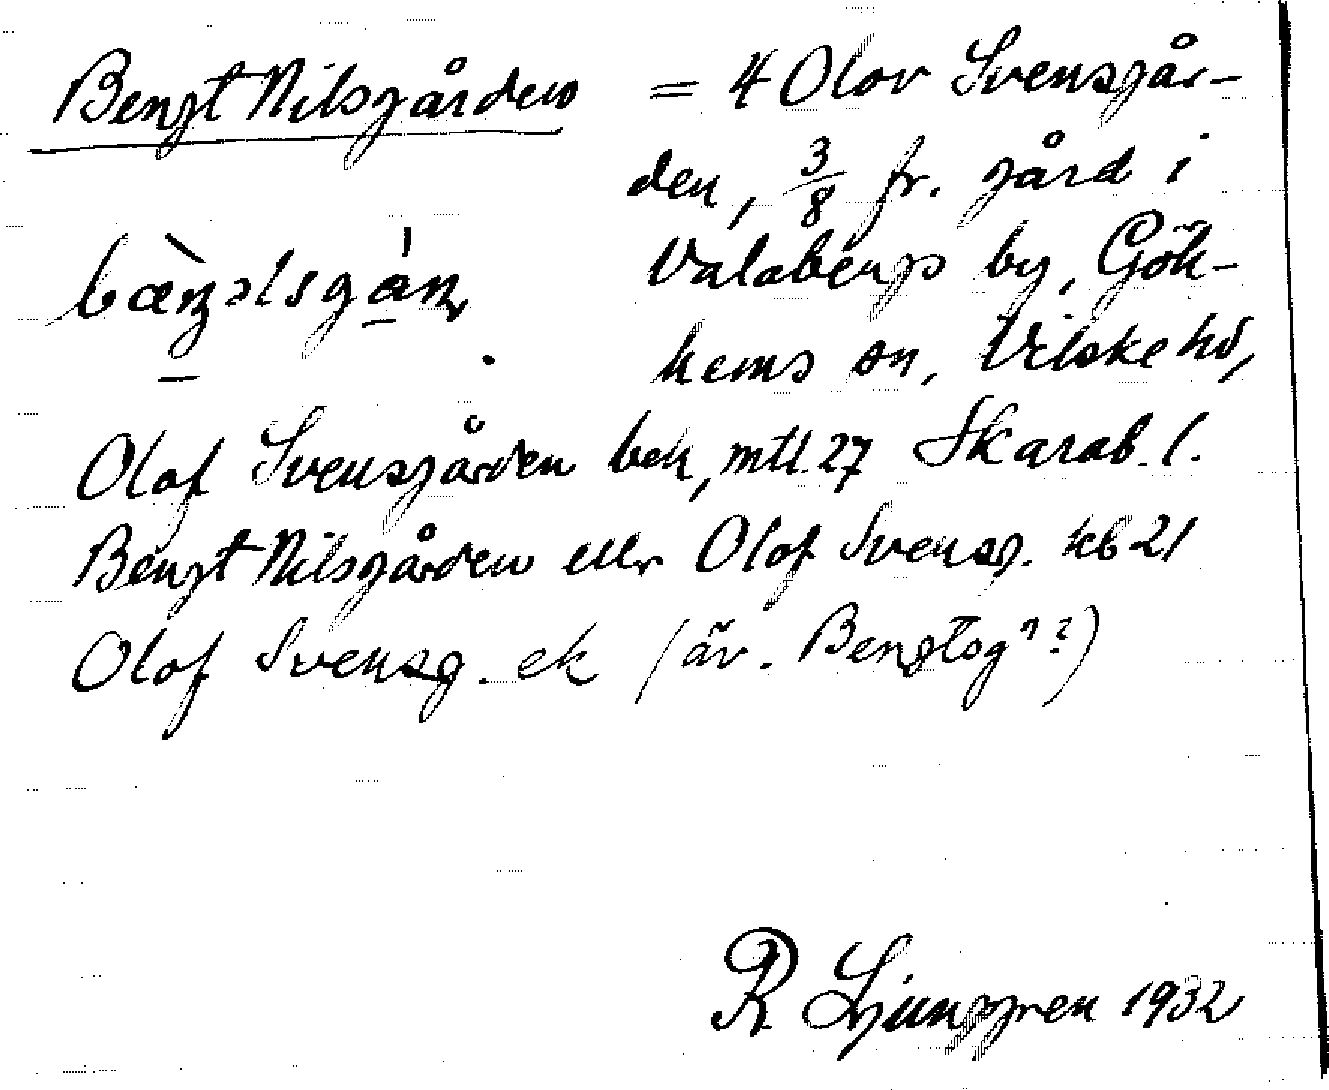 Bengt Nilsgården = 4 Olov Svensgår-
den, 3/8 fr. gård i
Valabergs by, Gök-
hems sn, Vilske hd,
Olof Svensgården bek, mtl 27 Skarab. l.
Bengt Nilsgården eller Olof Svensg. kb 21
Olof Svensg. ek (äv. Bengtsgn?)
R Ljunggren 1932